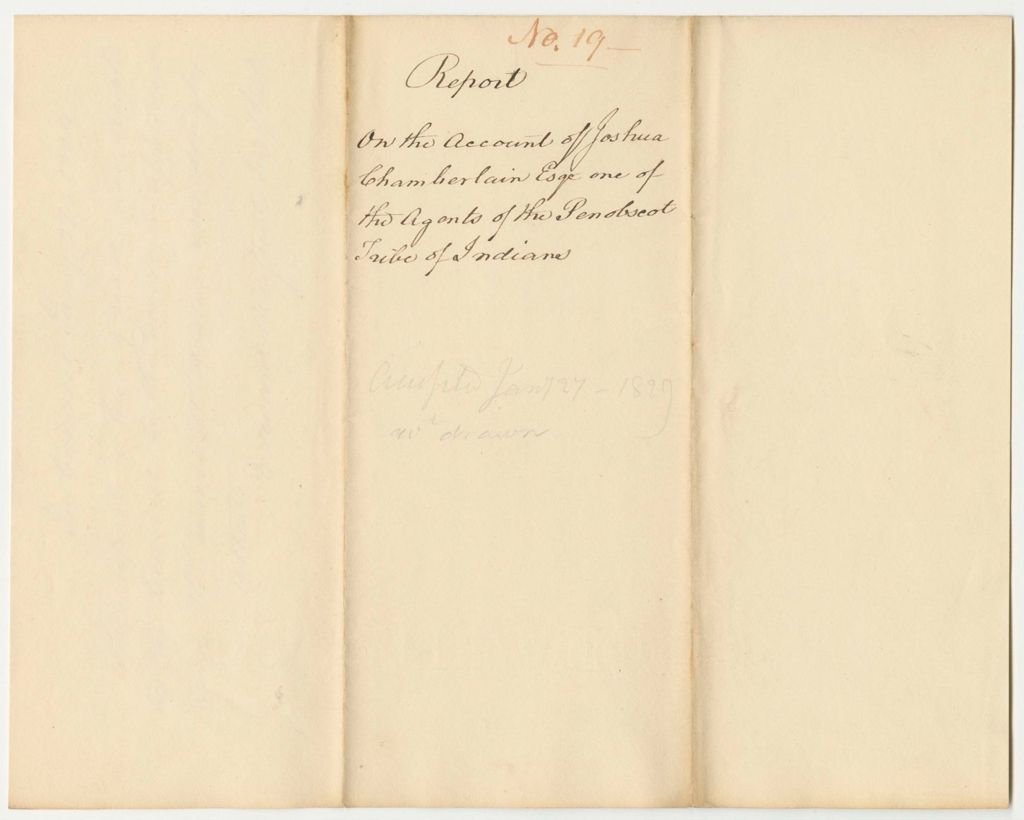 No. 19
Report
On the Account of Joshua
Chamberlain Esqr one of
the Agents of the Penobscot
Tribe of Indians
Accepted Jany 27 - 1829
wt drawn